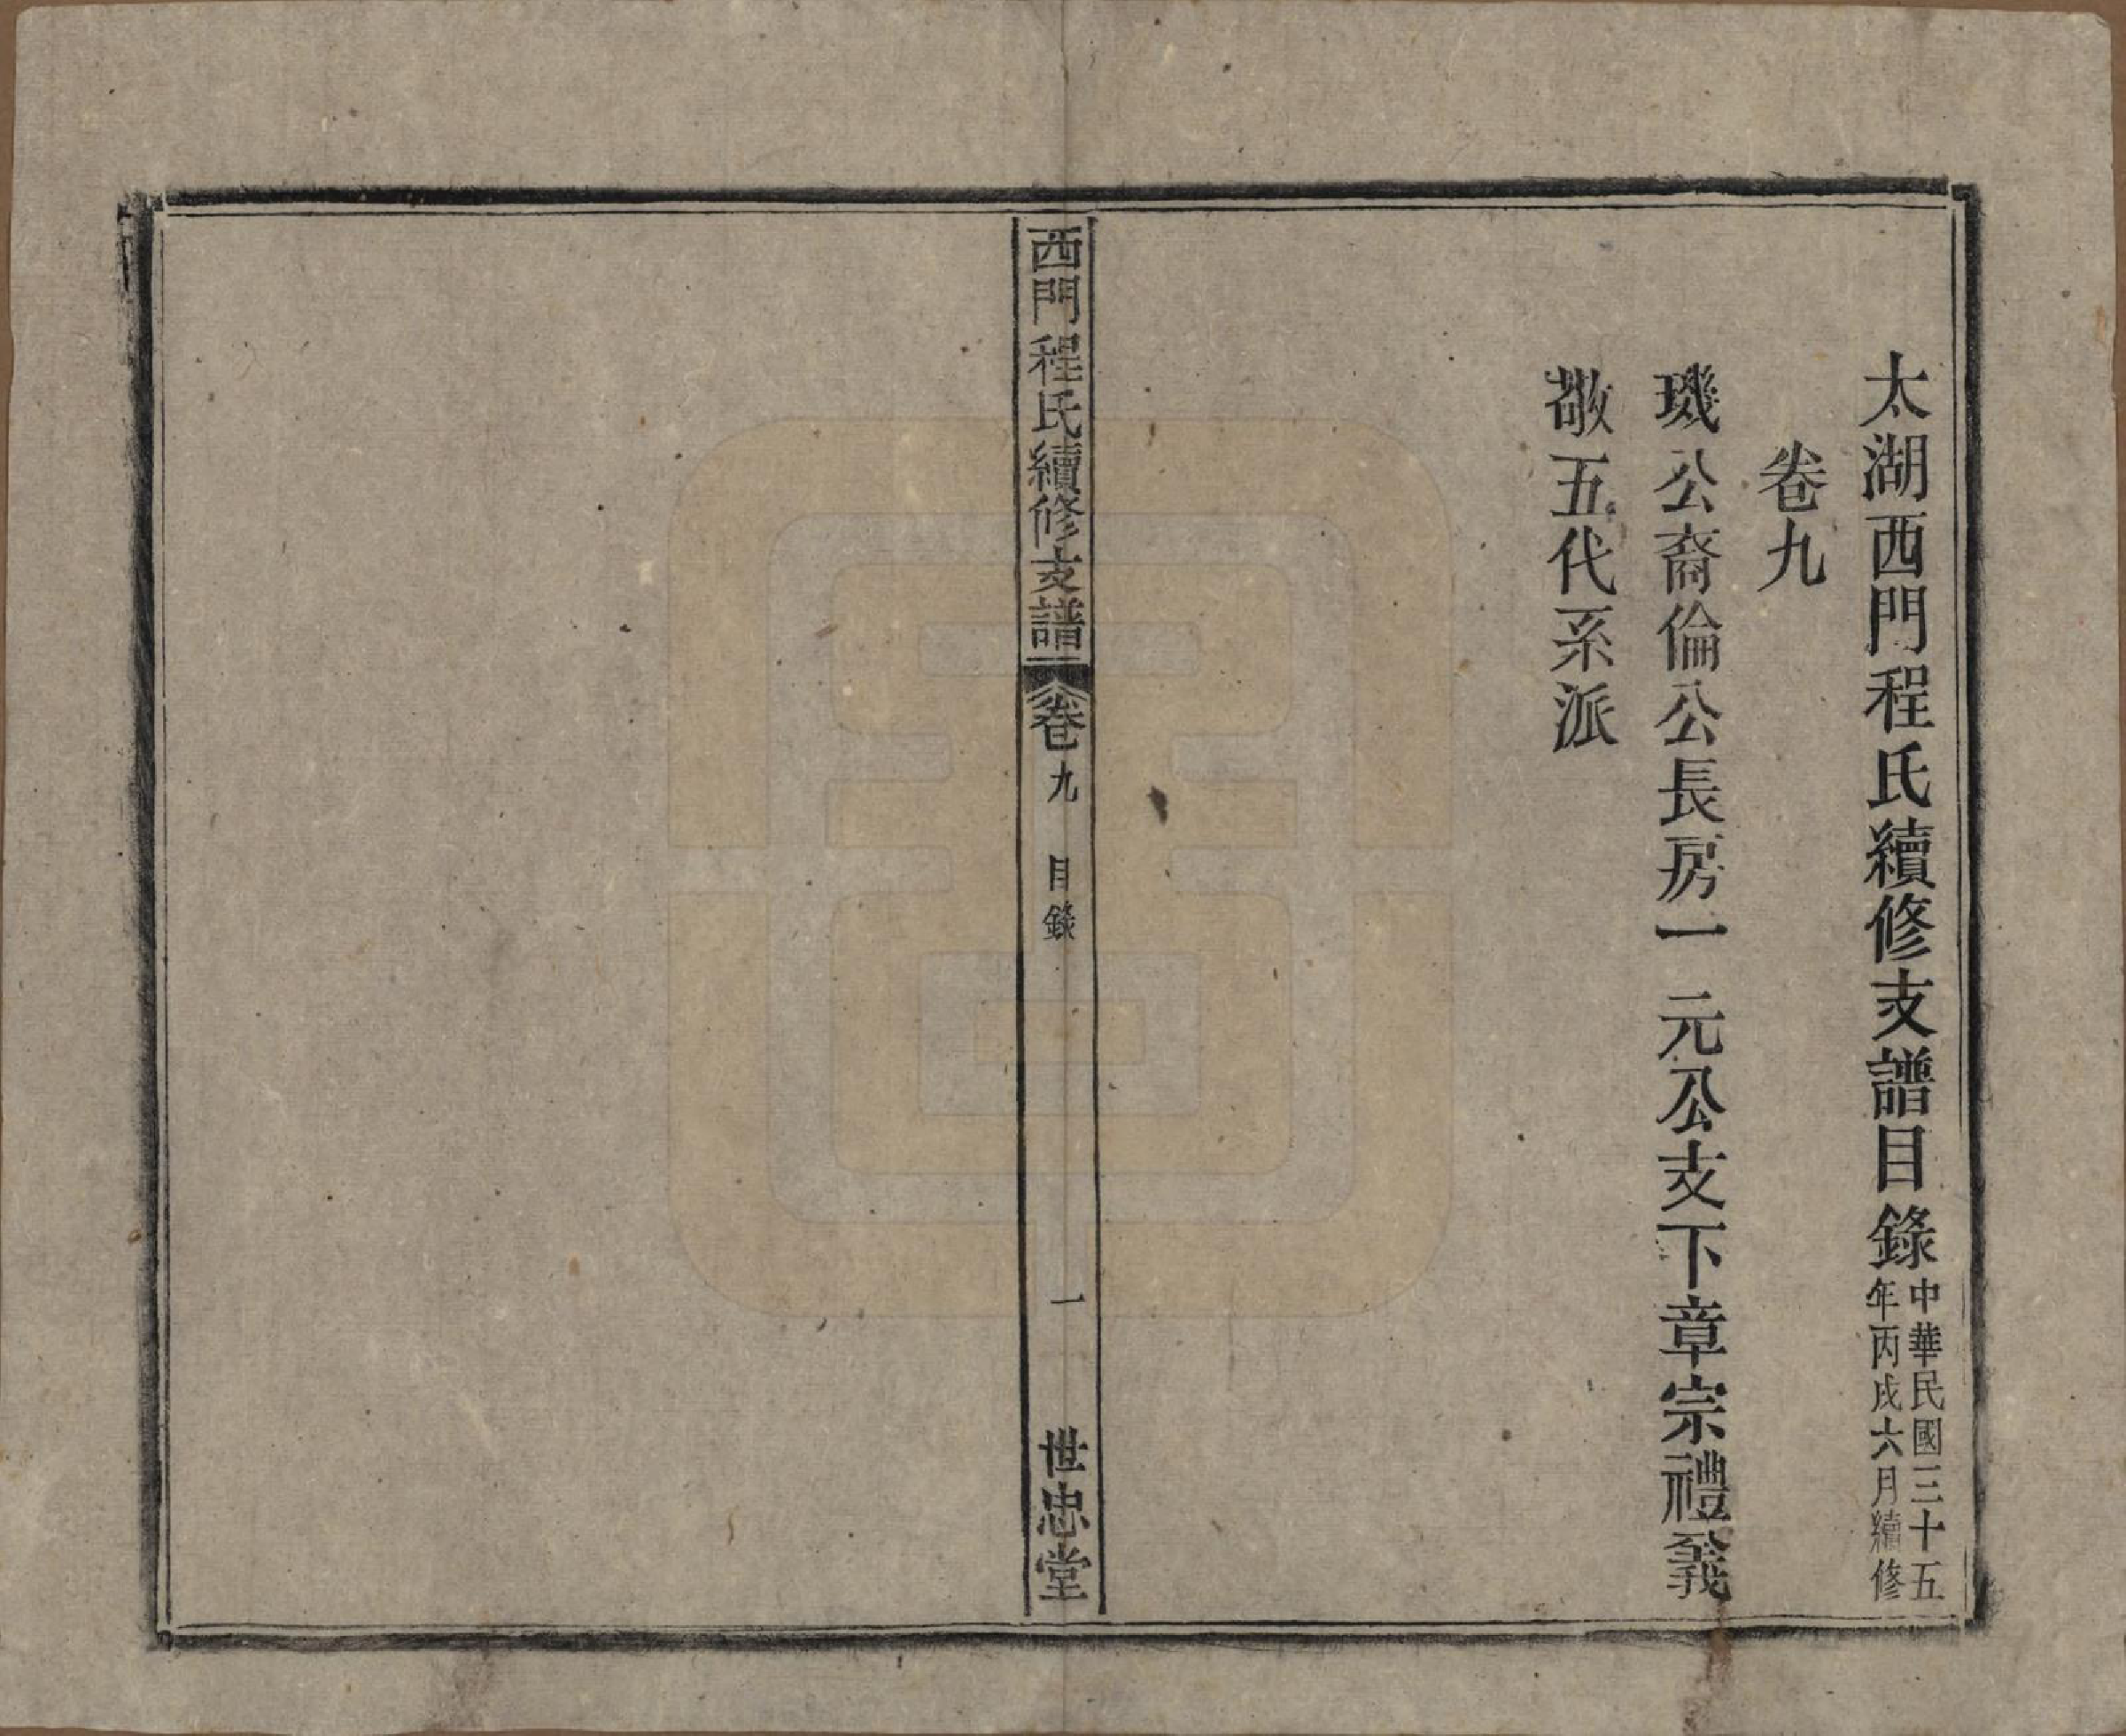 太湖西門程氏續修支譜目錄 中華民國三十五
年丙戌六月續修
卷九
璣公裔倫公長房一元公支下章宗禮義
敬五代系派
西門程氏續修支譜 卷九 目錄 一 世忠堂